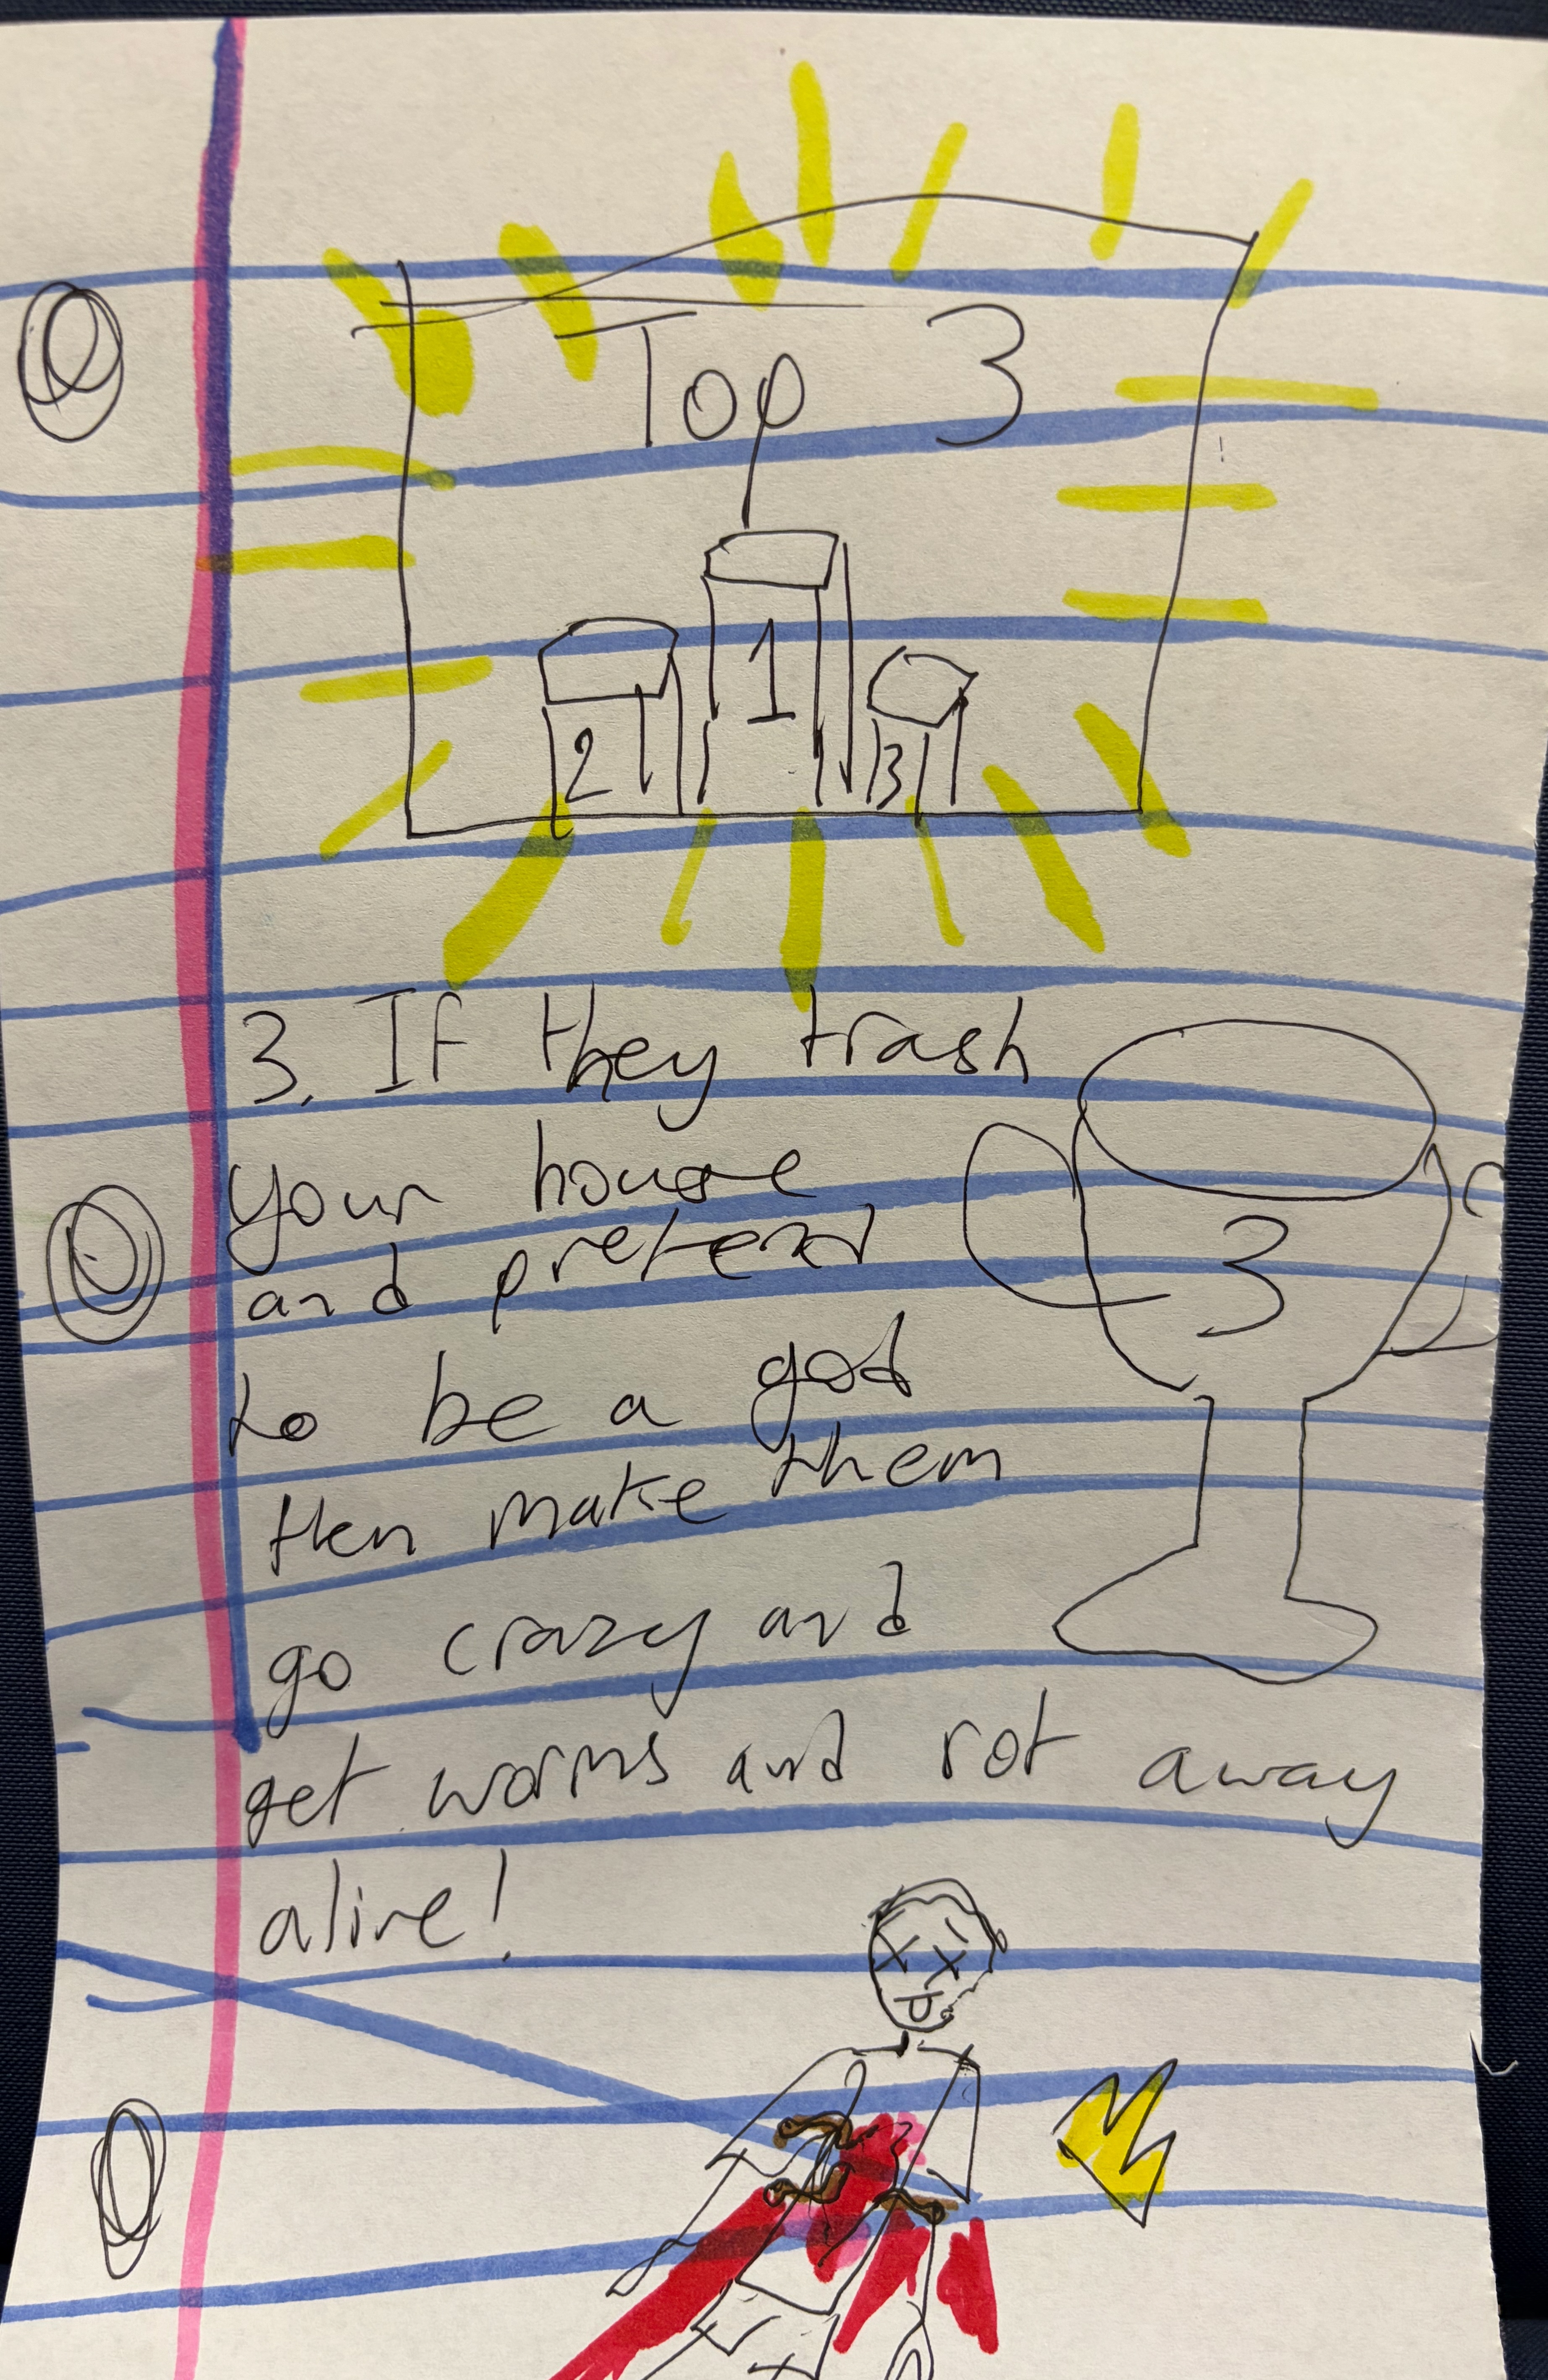 Top 3
2 1 3
3. If they trash
your house
and pretend
to be a god
then make them
go crazy and
get worms and rot away
alive!
3